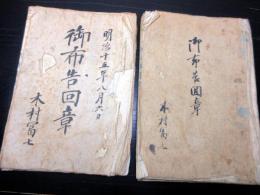 明治十五年八月六日
御布告回章
木村富七
御布告回章
木村富七